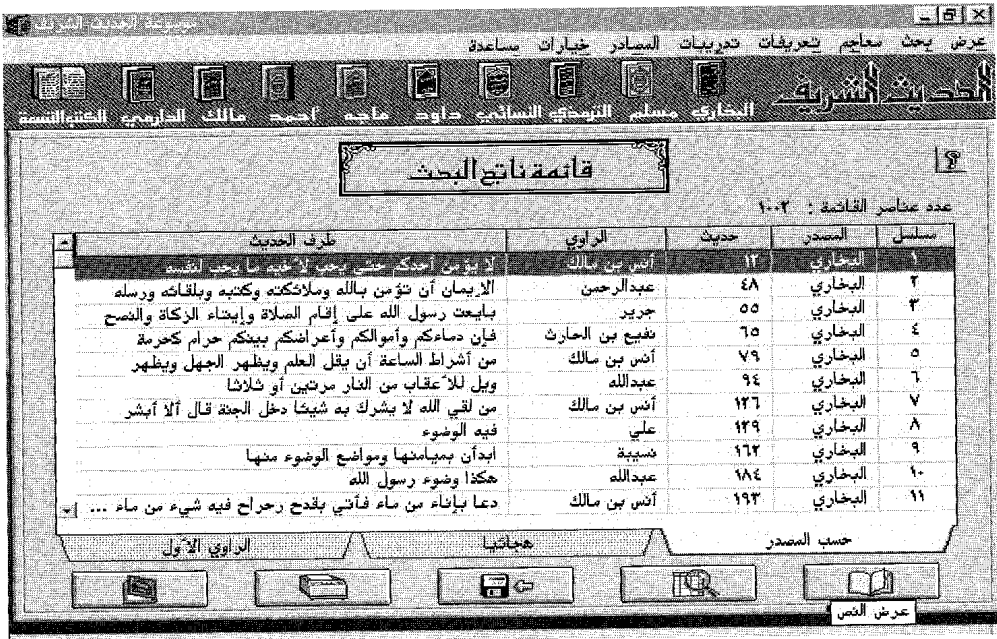 موسوعة الحديث الشريف
عرض بحث معاجم تعريفات تدريبات المصادر خيارات مساعدة
الحديث الشريف
البخاري مسلم الترمذي النسائي داود ماجه أحمد مالك الدارمي الكتب التسعة
قائمة ناتج البحث
عدد عناصر القائمة : ١٠٠٢
مسلسل المصدر حديث الراوي طرف الحديث
١ البخاري ١٢ أنس بن مالك لا يؤمن أحدكم حتى يحب لأخيه ما يحب لنفسه
٢ البخاري ٤٨ عبدالرحمن الإيمان أن تؤمن بالله وملائكته وكتبه وبلقائه ورسله
٣ البخاري ٥٥ جرير بايعت رسول الله على إقام الصلاة وإيتاء الزكاة والنصح
٤ البخاري ٦٥ نفيع بن الحارث فإن دماءكم وأموالكم وأعراضكم بينكم حرام كحرمة
٥ البخاري ٧٩ أنس بن مالك من أشراط الساعة أن يقل العلم ويظهر الجهل ويظهر
٦ البخاري ٩٤ عبدالله ويل للأعقاب من النار مرتين أو ثلاثا
٧ البخاري ١٢٦ أنس بن مالك من لقي الله لا يشرك به شيئا دخل الجنة قال ألا أبشر
٨ البخاري ١٢٩ علي فيه الوضوء
٩ البخاري ١٦٢ نسيبة ابدأن بميامنها ومواضع الوضوء منها
١٠ البخاري ١٨٤ عبدالله هكذا وضوء رسول الله
١١ البخاري ١٩٣ أنس بن مالك دعا بإناء من ماء فأتي بقدح رحراح فيه شيء من ماء ...
حسب المصدر هجائيا الراوي الأول
عرض النص